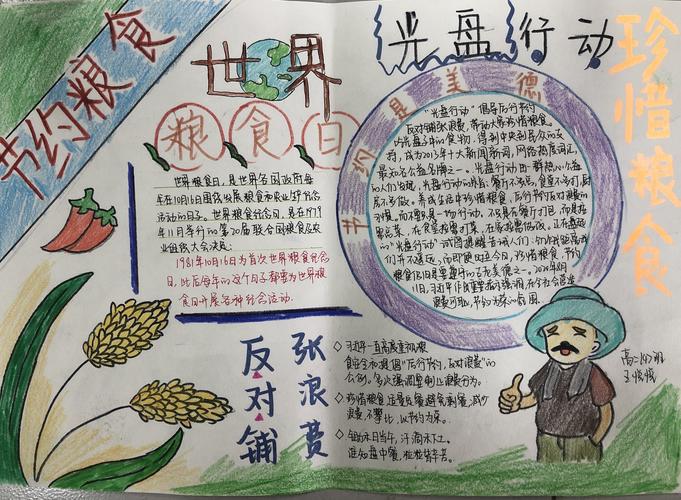 节约粮食
世界
粮食日
世界粮食日,是世界各国政府每
年在10月16日围绕发展粮食和农业举行纪念
活动的日子。世界粮食纪念日,是在1979
年11月举行的第20届联合国粮食及农
业组织大会决定:
1981年10月16日为首次世界粮食纪念
日,此后每年的这个日子都要为世界粮
食日开展各种纪念活动。
光盘行动
珍惜粮食
节约是美德
“光盘行动”倡导厉行节约
反对铺张浪费,带动大家珍惜粮食
吃光盘子中的食物,得到从中央到民众的支
持,成为2013年十大新闻热词,网络热度词汇,
最知名公益品牌之一。光盘行动由一群热心公益
的人们发起,光盘行动的宗旨:餐厅不多点,食堂不多打,厨
房不多做。养成生活中珍惜粮食,厉行节约反对浪费的
习惯,而不要只是一场行动。不只是在餐厅打包,而是按
需点菜,在食堂按需打菜,在家按需做饭。正在盘起
的“光盘行动”试图提醒与告诫人们:
们并不遥远,而即便时至今日,珍惜粮食,节约
粮食仍旧是需要遵守的古老美德之一。
11日,习近平作出重要指示强调,在全社会营造
浪费可耻,节约为荣的氛围。
反对铺
张浪费
◇习近平一直高度重视粮
食安全和提倡“厉行节约,反对浪费”的
公德,多次强调要制止浪费行为。
◇珍惜粮食适量定餐避免剩餐,减少
浪费不攀比,以节约为荣。
◇锄禾日当午,汗滴禾下土。
谁知盘中餐,粒粒皆辛苦。